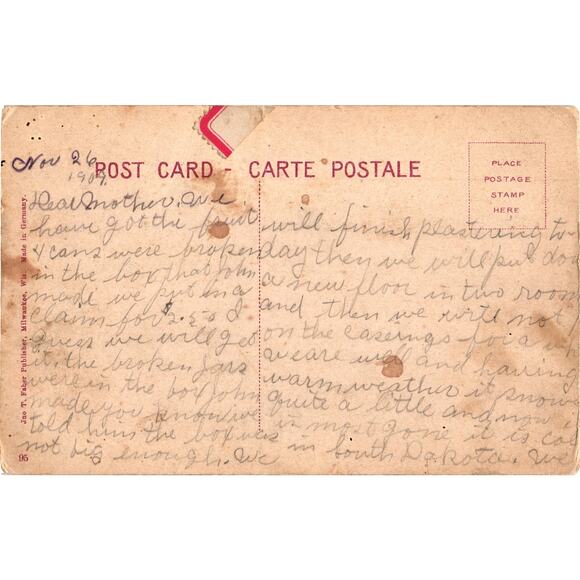 Nov 26
1909.
POST CARD - CARTE POSTALE
PLACE
POSTAGE
STAMP
HERE
Jno T. Faber Publisher, Milwaukee, Wis. Made in Germany.
95
Dear Mother, We
have got the fruit
4 cans were broken
in the box that John
made we put in a
claim for $2.50 I
guess we will get
it, the broken jars
were in the box John
made you know we
told him the box was
not big enough. We
will finish plastering to-
day then we will put dow
a new floor in two room
and then we will not p
on the casings for a wh
we are well and having
warm weather it snowe
quite a little and now i
is most gone it is col
in South Dakota. We